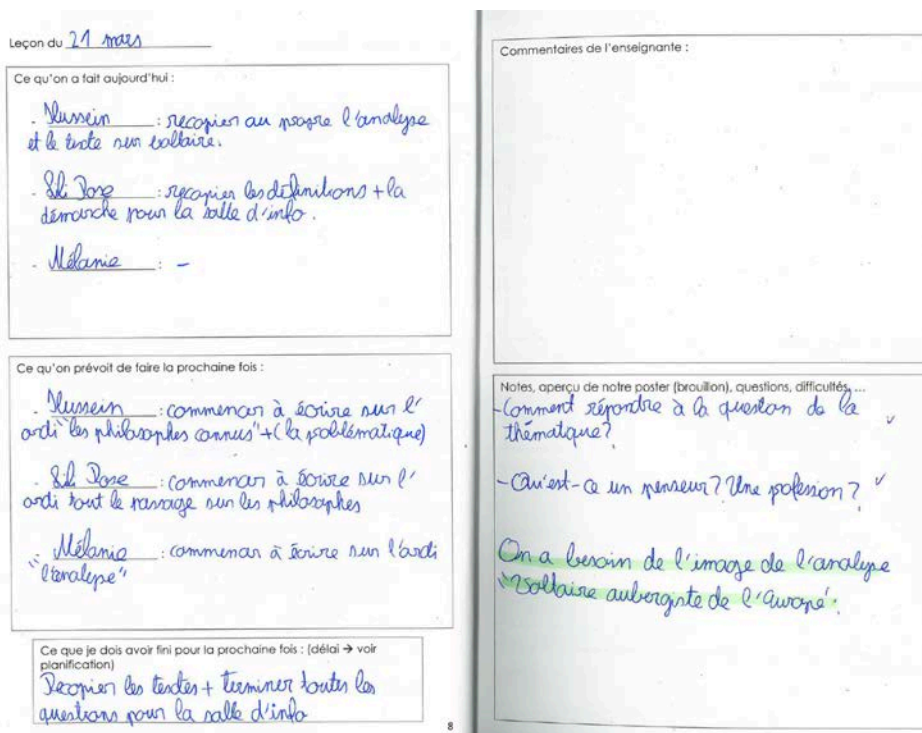 Leçon du 21 mars
Ce qu'on a fait aujourd'hui :
- Hussein : recopier au propre l'analyse
et le texte sur voltaire.
- Lili Rose : recopier les définitions + la
démarche pour la salle d'info.
- Mélanie : -
Ce qu'on prévoit de faire la prochaine fois :
- Hussein : commencer à écrire sur l'
ordi "les philosophes connus" + (la problématique)
- Lili Rose : commencer à écrire sur l'
ordi tout le passage sur les philosophes
- Mélanie : commencer à écrire sur l'ordi
"l'analyse"
Ce que je dois avoir fini pour la prochaine fois : (délai → voir
planification)
Recopier les textes + terminer toutes les
questions pour la salle d'info
8
Commentaires de l'enseignante :
Notes, aperçu de notre poster (brouillon), questions, difficultés, ...
- Comment répondre à la question de la
thématque?
- Qu'est-ce un penseur? Une profession?
On a besoin de l'image de l'analyse
"Voltaire aubergiste de l'